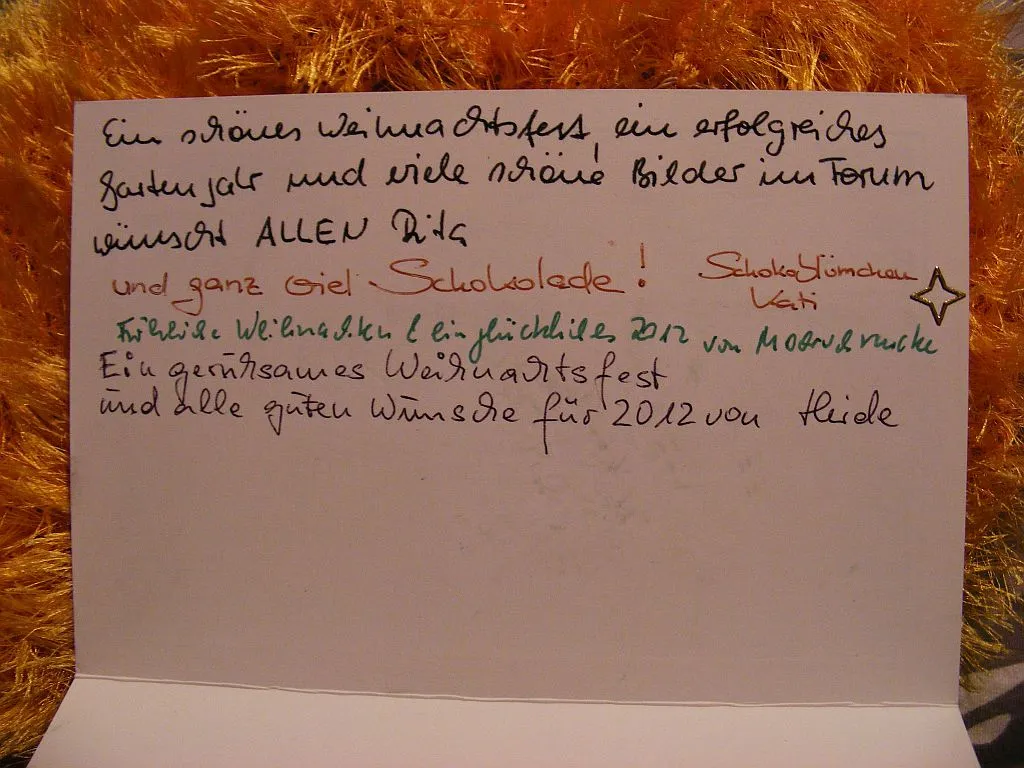 Ein schönes Weihnachtsfest, ein erfolgreiches
Gartenjahr und viele schöne Bilder im Forum
wünscht ALLEN Rita
und ganz viel Schokolade! Schokoblümchen
Kati
Fröhliche Weihnachten & ein glückliches 2012 von
Ein geruhsames Weihnachtsfest
und alle guten Wünsche für 2012 von Heide